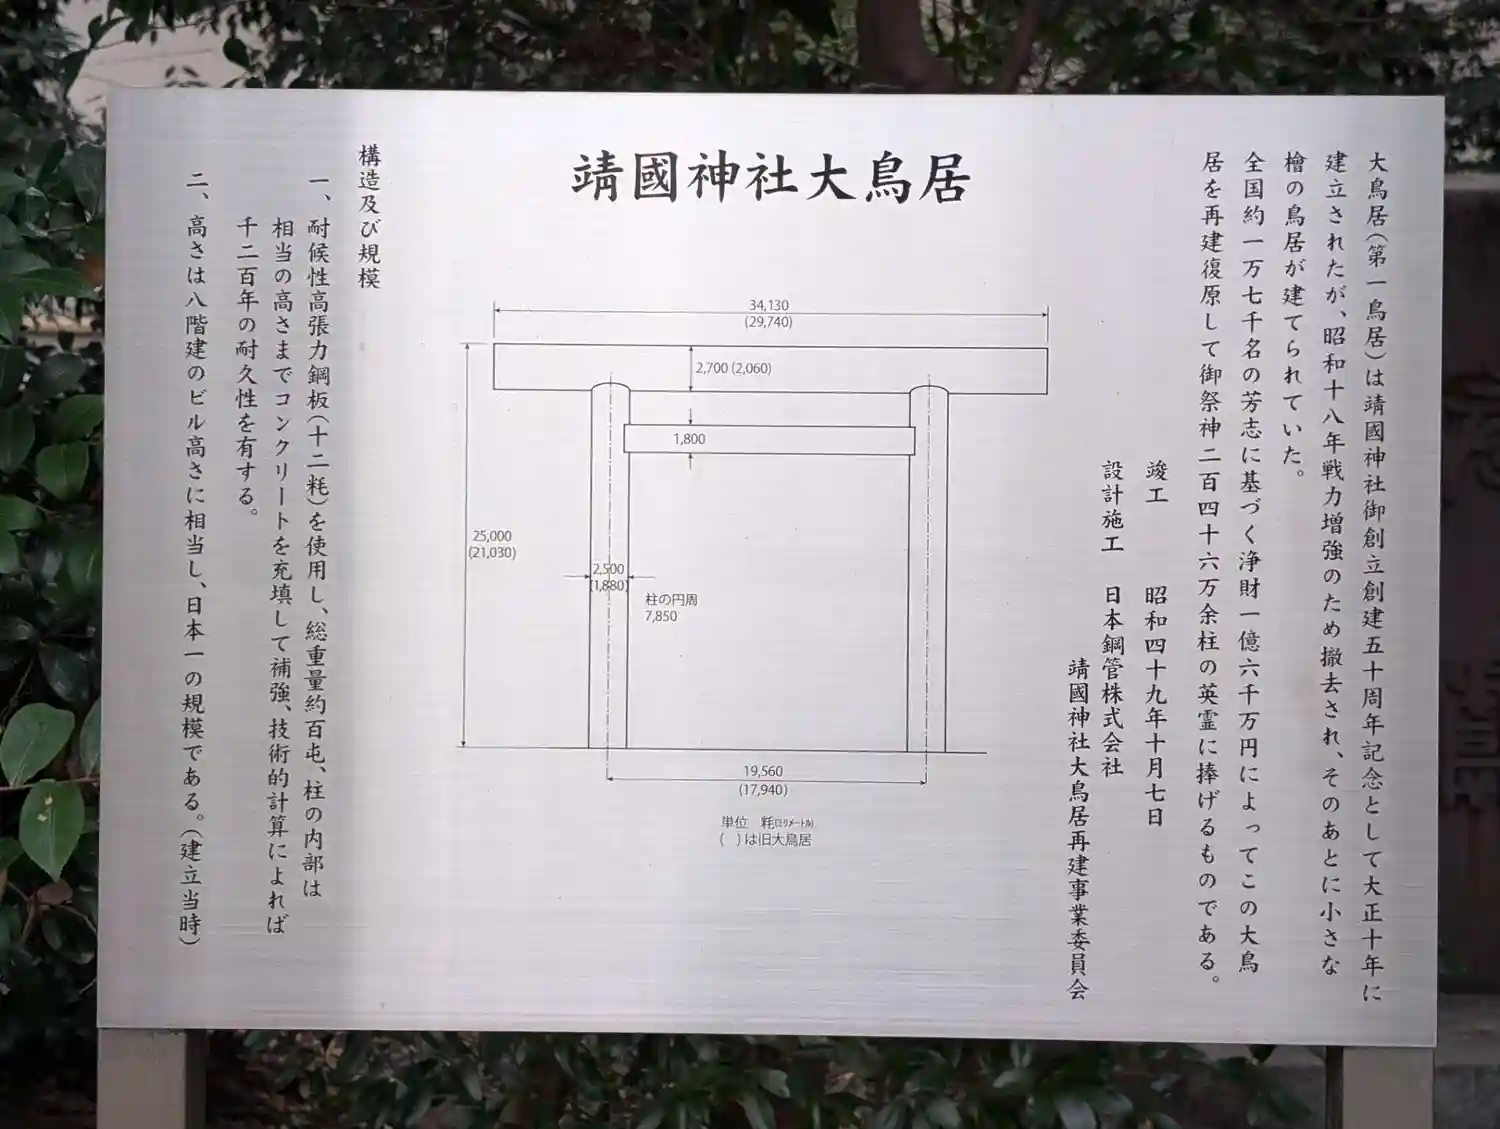 靖國神社大鳥居
大鳥居(第一鳥居)は靖國神社御創立創建五十周年記念として大正十年に
建立されたが、昭和十八年戦力増強のため撤去され、そのあとに小さな
檜の鳥居が建てられていた。
全国約一万七千名の芳志に基づく浄財一億六千万円によってこの大鳥
居を再建復原して御祭神二百四十六万余柱の英霊に捧げるものである。
竣工 昭和四十九年十月七日
設計施工 日本鋼管株式会社
靖國神社大鳥居再建事業委員会
34,130
(29,740)
2,700 (2,060)
1,800
25,000
(21,030)
2,500
(1,880)
柱の円周
7,850
19,560
(17,940)
単位 粍(ミリメートル)
( )は旧大鳥居
構造及び規模
一、耐候性高張力鋼板(十二粍)を使用し、総重量約百屯、柱の内部は
相当の高さまでコンクリートを充填して補強、技術的計算によれば
千二百年の耐久性を有する。
二、高さは八階建のビル高さに相当し、日本一の規模である。(建立当時)